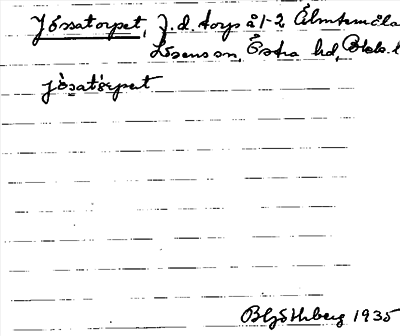 Jössatorpet, f.d. torp å 1-2 Älmtamåla
Lösen sn, Östra hd, Blek. l
jössatörpet
B Hj Söthberg 1935